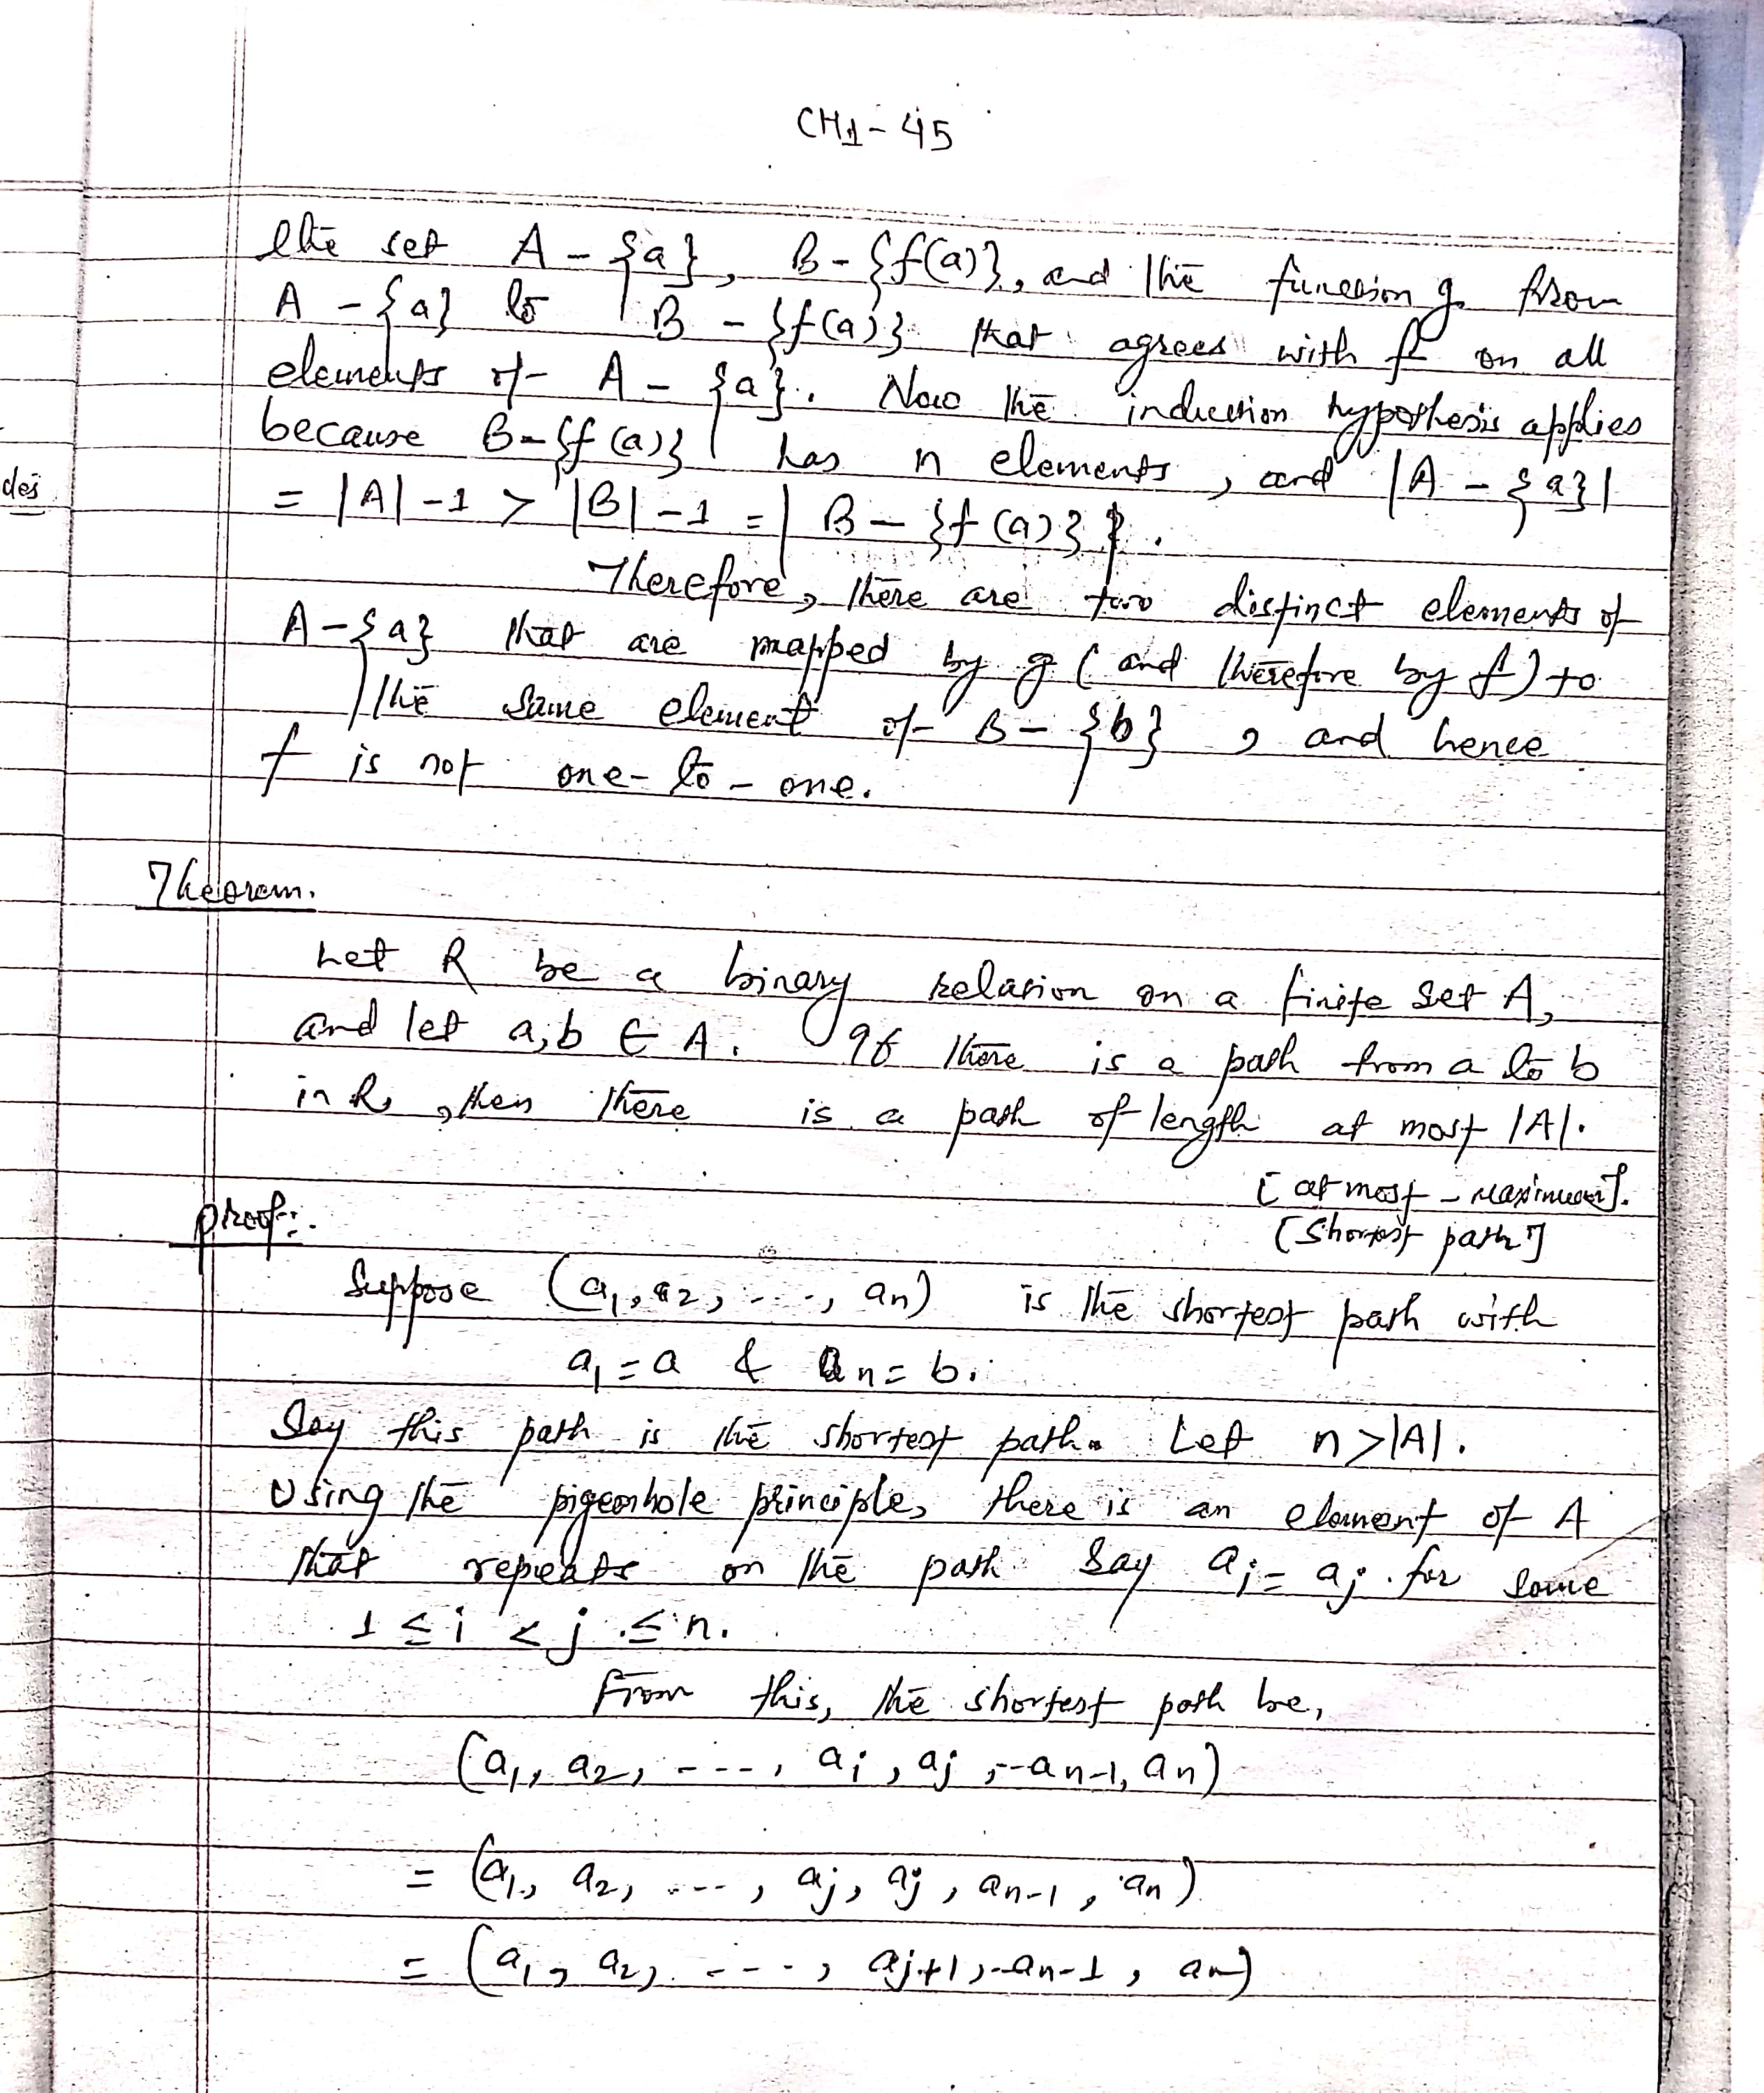 CH1-45
the set A - {a}, B - {f(a)}, and the function g from
A - {a} to B - {f(a)} that agrees with f on all
elements of A - {a}. Now the induction hypothesis applies
because B-{f(a)} has n elements, and |A - {a}|
des
= |A| -1 > |B| -1 = | B - {f(a)} |.
Therefore, there are two distinct elements of
A-{a} that are mapped by g (and therefore by f) to
the same element of B - {b}, and hence
f is not one-to-one.
Theorem.
Let R be a binary relation on a finite set A,
and let a,b ∈ A. If there is a path from a to b
in R, then there is a path of length at most |A|.
[at most - maximum].
[shortest path]
proof:
Suppose (a1, a2, ..., an) is the shortest path with
a1 = a & an = b.
Say this path is the shortest path. Let n > |A|.
Using the pigeonhole principle, there is an element of A
that repeats on the path say ai = aj for some
1 ≤ i < j ≤ n.
From this, the shortest path be,
(a1, a2, ---, ai, aj, --an-1, an)
= (a1, a2, ----, aj, aj, an-1, an)
= (a1, a2, ----, aj+1, --an-1, an)